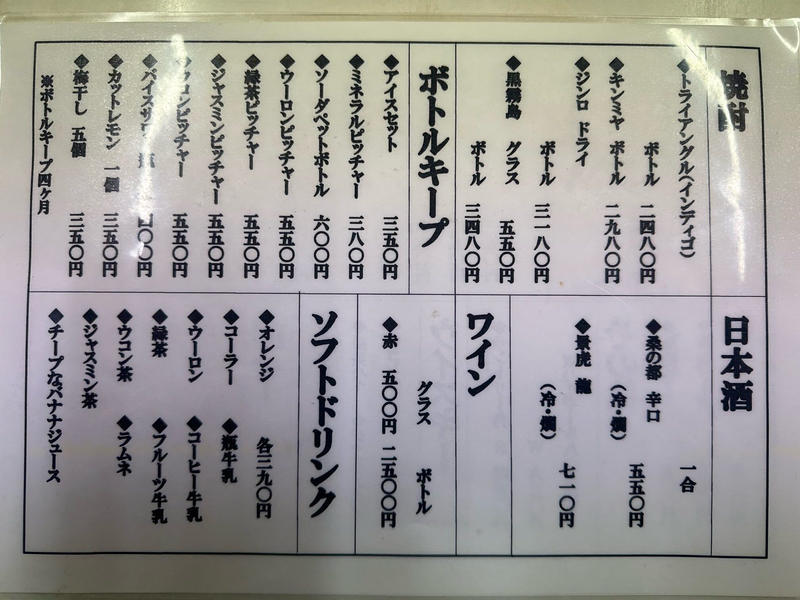 焼酎
◆トライアングル(インディゴ)
ボトル 二四八〇円
◆キンミヤ ボトル 二九八〇円
◆ジンロ ドライ
ボトル 三一八〇円
◆黒霧島 グラス 五五〇円
ボトル 三四八〇円
ボトルキープ
◆アイスセット 三五〇円
◆ミネラルピッチャー 三八〇円
◆ソーダペットボトル 六〇〇円
◆ウーロンピッチャー 五五〇円
◆緑茶ピッチャー 五五〇円
◆ジャスミンピッチャー 五五〇円
◆ウコンピッチャー 五五〇円
◆パイスサワー 四〇〇円
◆カットレモン 一個 三五〇円
◆梅干し 五個 三五〇円
※ボトルキープ四ヶ月
日本酒
一合
◆桑の都 辛口
(冷・燗) 五五〇円
◆景虎 龍
(冷・燗) 七一〇円
ワイン
グラス ボトル
◆赤 五〇〇円 二五〇〇円
ソフトドリンク
各三九〇円
◆オレンジ
◆コーラー ◆瓶牛乳
◆ウーロン ◆コーヒー牛乳
◆緑茶 ◆フルーツ牛乳
◆ウコン茶 ◆ラムネ
◆ジャスミン茶
◆チープなバナナジュース